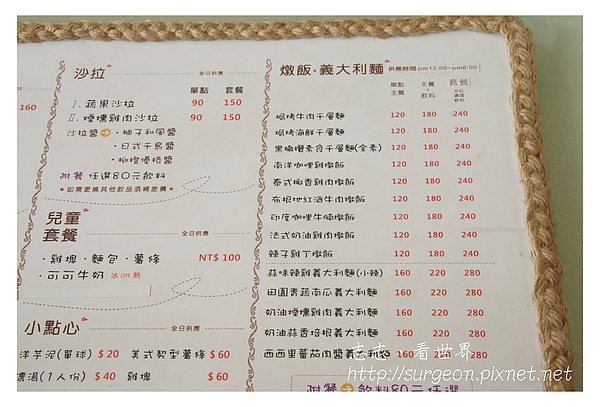 160
沙拉 全日供應
單點 套餐
I. 蔬果沙拉 90 150
II. 煙燻雞肉沙拉 90 150
沙拉醬 ・柚子和風醬
・日式千島醬
・柳橙優格醬
附餐 任選80元飲料
＊如需更換其他飲品須補差價＊
兒童套餐 全日供應
・雞塊・麵包・薯條 NT$ 100
・可可牛奶 冰OR熱
小點心 全日供應
洋芋泥(單球) $20 美式契型薯條 $60
濃湯(1人份) $40 雞塊 $60
燉飯・義大利麵 供應時間pm12:00~pm8:00
單點 主餐 套餐
主餐 飲料
焗烤牛肉千層麵 120 180 240
焗烤海鮮千層麵 120 180 240
黑橄欖素食千層麵(全素) 120 180 240
南洋咖哩雞燉飯 120 180 240
泰式椒香雞肉燉飯 120 180 240
布根地紅酒牛肉燉飯 120 180 240
印度咖哩牛腩燉飯 120 180 240
法式奶油雞肉燉飯 120 180 240
辣子雞丁燉飯 120 180 240
蒜味辣雞義大利麵(小辣) 160 220 280
田園青蔬南瓜義大利麵 160 220 280
奶油煙燻雞肉義大利麵 160 220 280
奶油蒜香培根義大利麵 160 220 280
西西里蕃茄肉醬義大利麵 160 220 280
附餐 飲料80元任選
志志 看世界
http://surgeon.pixnet.net